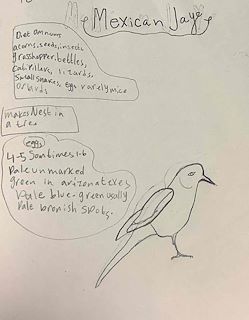 Mexican Jay
Diet omnivores
acorns, seeds, insects
grasshopper, bettles,
Catipillars, lizards,
Small snakes, eggs rarely mice
or birds
makes Nest in
a tree
eggs
4-5 Somtimes 1-6
Pale unmarked
green in arizona texes
Pale blue-green usally
Pale bronish Spots.